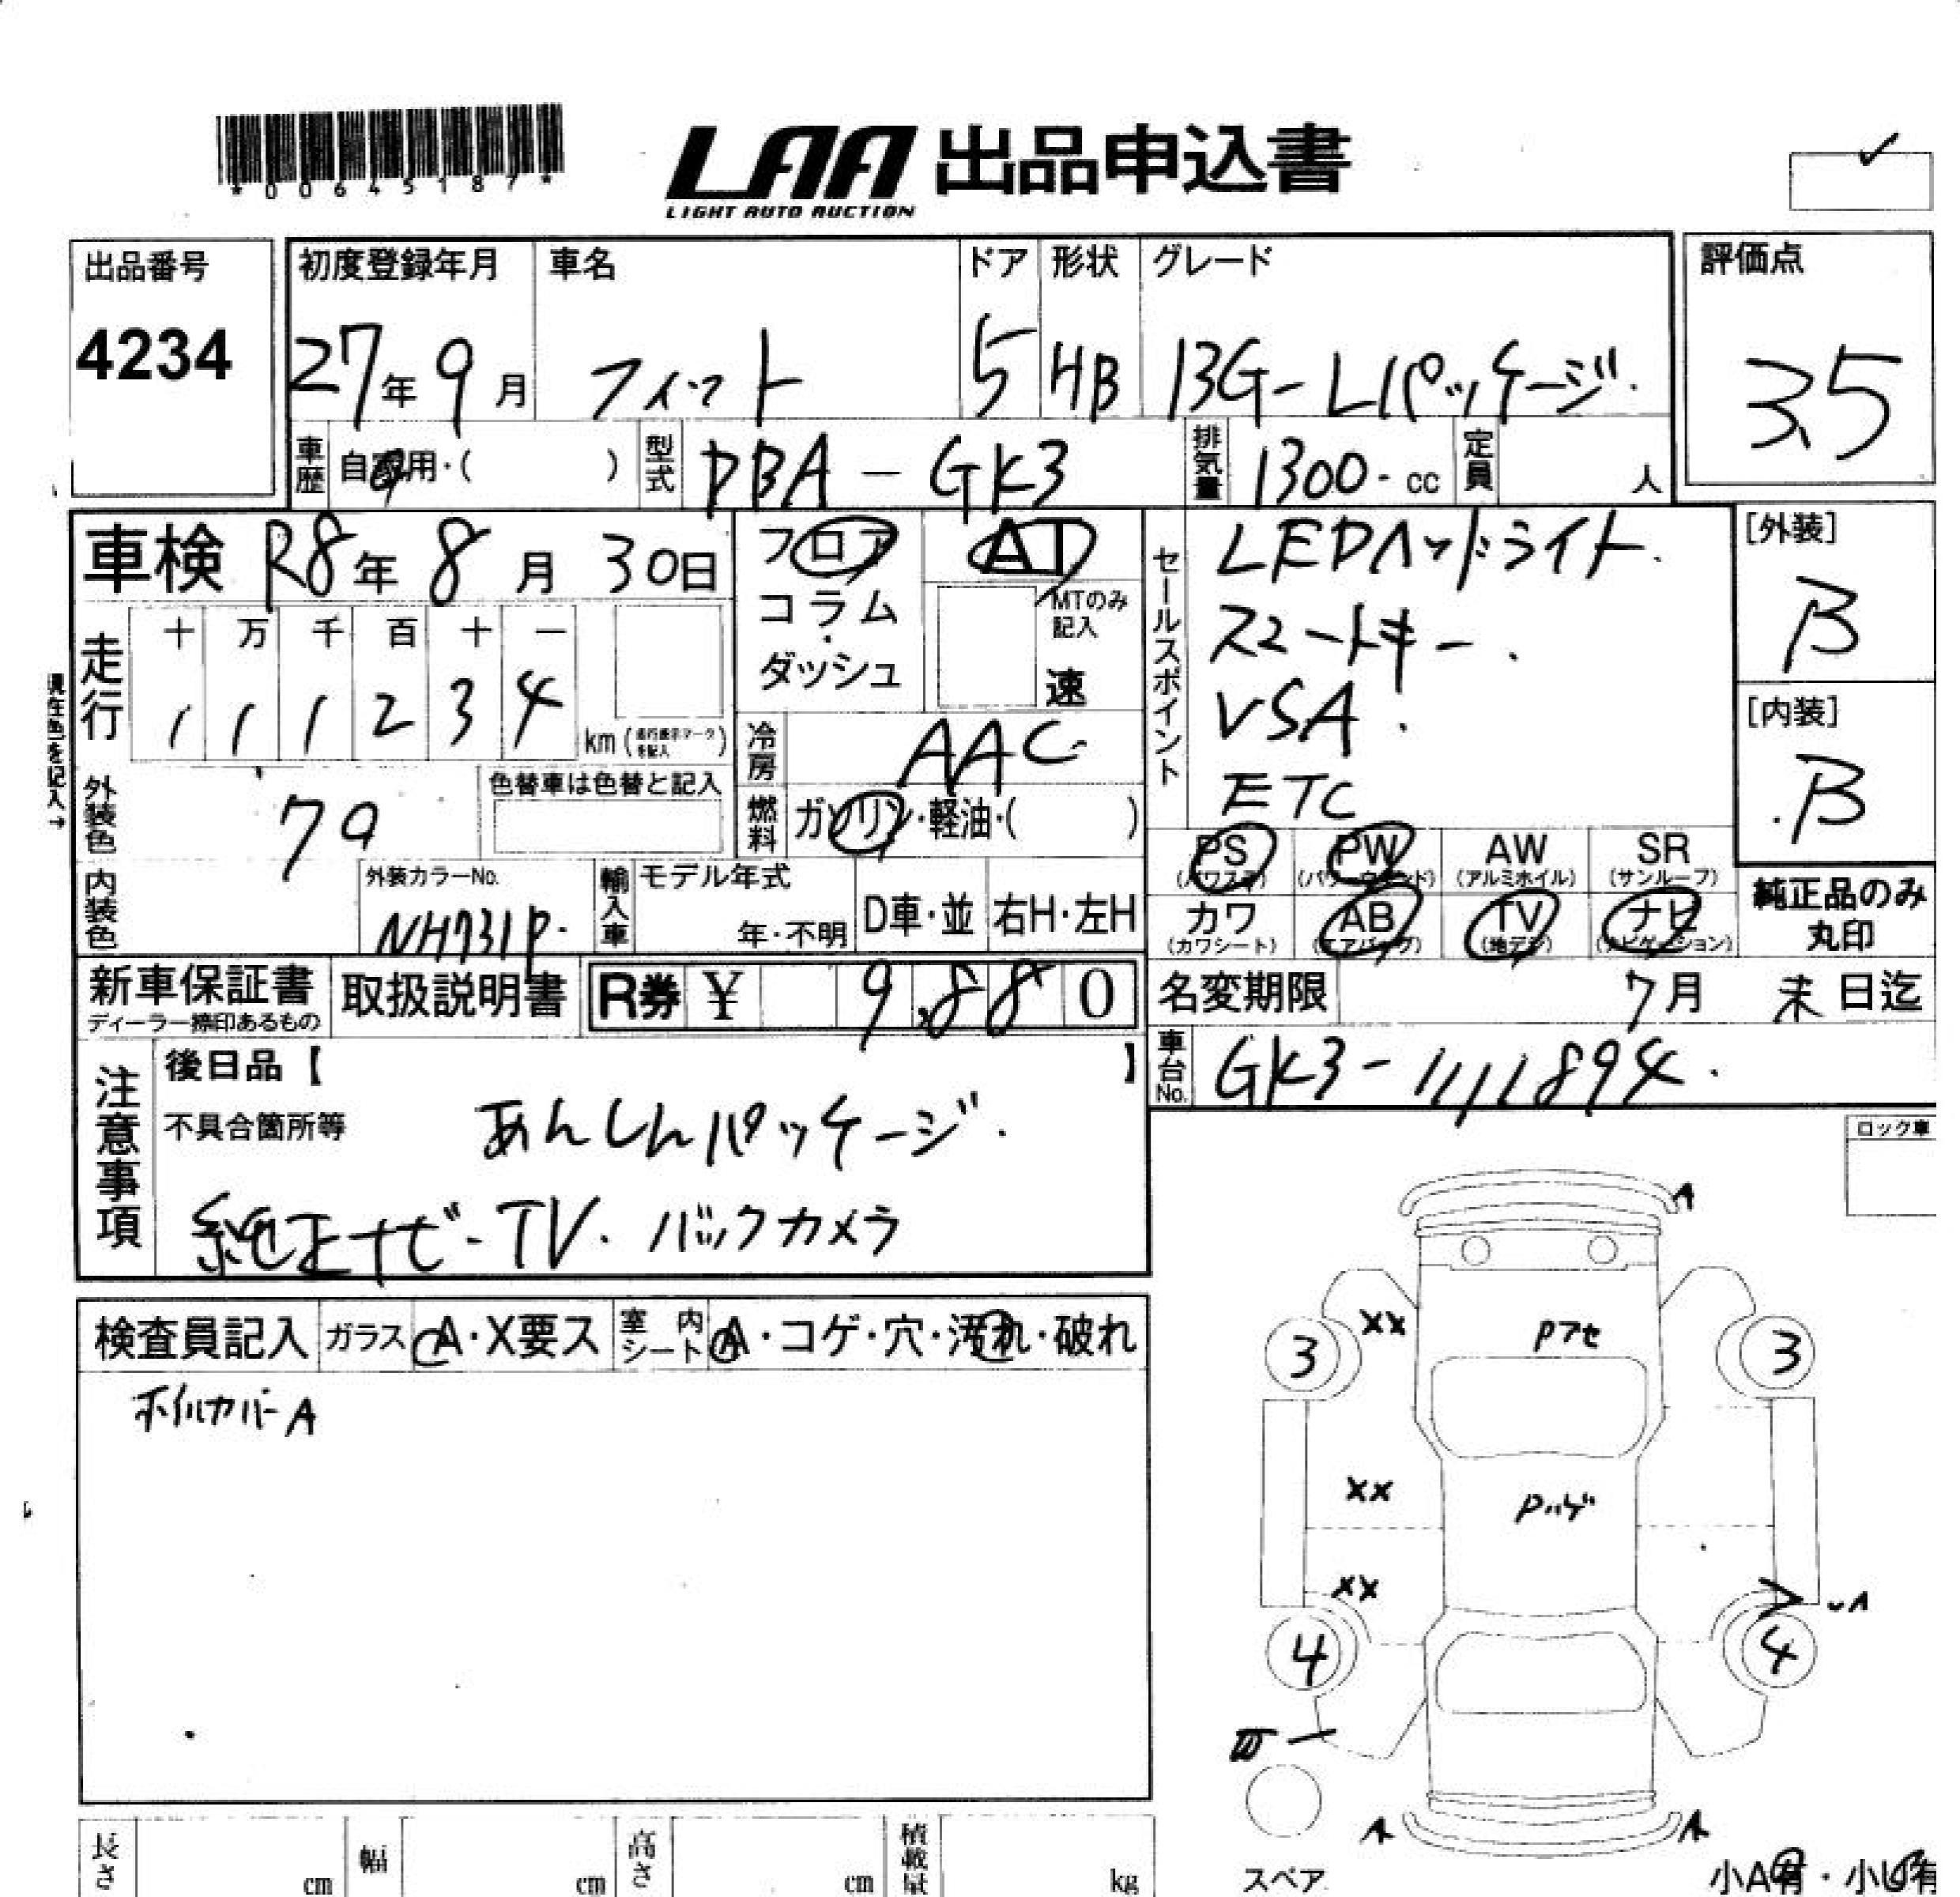 *00645187*
LAA 出品申込書
LIGHT AUTO AUCTION
出品番号
4234
初度登録年月 車名 ドア 形状 グレード
27年9月 フィット 5 HB 13G-Lパッケージ
評価点
3.5
車歴 自家用・( ) 型式 DBA-GK3 排気量 1300 cc 定員 人
車検 R8年8月30日
フロア AT
コラム・ダッシュ
MTのみ記入
速
走行 十 万 千 百 十 一
1 1 1 2 3 4 km (走行表示マークを記入)
現在色を記入→
外装色 79
色替車は色替と記入
内装色
外装カラーNo.
NH731P
冷房 AAC
燃料 ガソリン・軽油・( )
輸入車 モデル年式
年・不明
D車・並 右H・左H
セールスポイント
LEDヘッドライト
スマートキー
VSA
ETC
PS (パワステ) PW (パワーウィンド) AW (アルミホイル) SR (サンルーフ)
カワ (カワシート) AB (エアバッグ) TV (地デジ) ナビ (ナビゲーション)
[外装]
B
[内装]
B
純正品のみ
丸印
新車保証書
ディーラー捺印あるもの
取扱説明書
R券 ¥ 9,880
名変期限 7月 末日迄
車台No. GK3-1111894
注意事項
後日品【 】
不具合箇所等
あんしんパッケージ
純正ナビ-TV.バックカメラ
検査員記入 ガラス A・X要ス 室内シート A・コゲ・穴・汚れ・破れ
ホイルカバーA
ロック車
A
XX
Pアセ
3
3
XX
Pハゲ
XX
4
4
A
A
スペア
小A有・小U有
長さ cm 幅 cm 高さ cm 積載量 kg